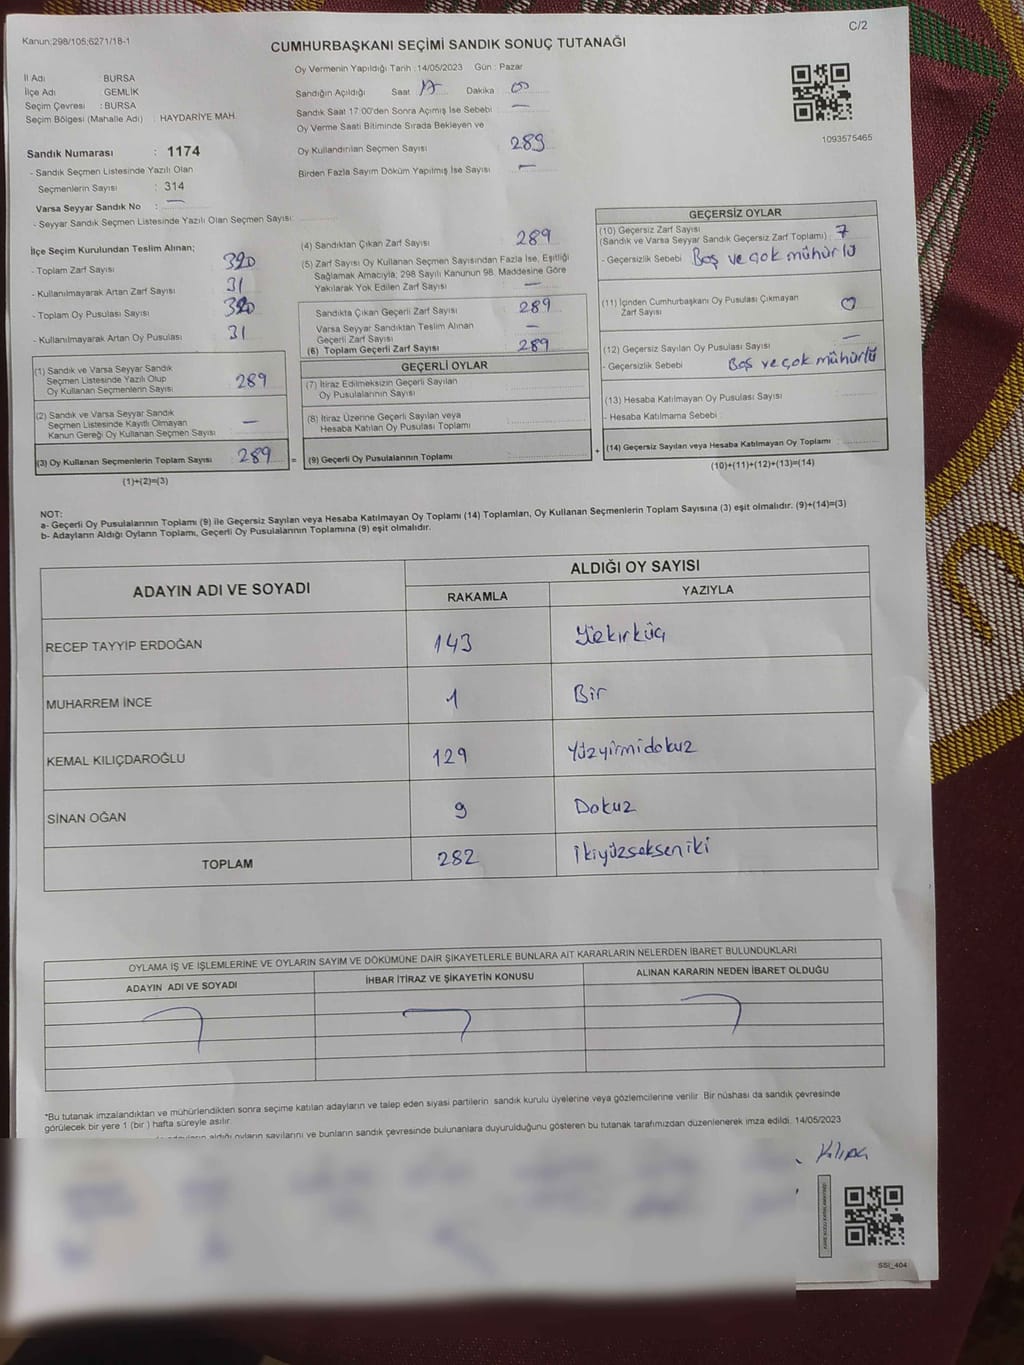 Kanun:298/105;6271/18-1
C/2
CUMHURBAŞKANI SEÇİMİ SANDIK SONUÇ TUTANAĞI
İl Adı : BURSA
İlçe Adı : GEMLİK
Seçim Çevresi : BURSA
Seçim Bölgesi (Mahalle Adı) : HAYDARİYE MAH.
Oy Vermenin Yapıldığı Tarih :14/05/2023 Gün : Pazar
Sandığın Açıldığı Saat 17 Dakika 00
Sandık Saat 17:00'den Sonra Açılmış İse Sebebi : —
Oy Verme Saati Bitiminde Sırada Bekleyen ve
Oy Kullandırılan Seçmen Sayısı 289
Birden Fazla Sayım Döküm Yapılmış İse Sayısı —
1093575465
Sandık Numarası : 1174
- Sandık Seçmen Listesinde Yazılı Olan
Seçmenlerin Sayısı : 314
Varsa Seyyar Sandık No : —
- Seyyar Sandık Seçmen Listesinde Yazılı Olan Seçmen Sayısı:
İlçe Seçim Kurulundan Teslim Alınan;
- Toplam Zarf Sayısı 320
- Kullanılmayarak Artan Zarf Sayısı 31
- Toplam Oy Pusulası Sayısı 320
- Kullanılmayarak Artan Oy Pusulası 31
(1) Sandık ve Varsa Seyyar Sandık
Seçmen Listesinde Yazılı Olup
Oy Kullanan Seçmenlerin Sayısı 289
(2) Sandık ve Varsa Seyyar Sandık
Seçmen Listesinde Kayıtlı Olmayan
Kanun Gereği Oy Kullanan Seçmen Sayısı —
(3) Oy Kullanan Seçmenlerin Toplam Sayısı 289
(1)+(2)=(3)
(4) Sandıktan Çıkan Zarf Sayısı 289
(5) Zarf Sayısı Oy Kullanan Seçmen Sayısından Fazla İse, Eşitliği
Sağlamak Amacıyla; 298 Sayılı Kanunun 98. Maddesine Göre
Yakılarak Yok Edilen Zarf Sayısı —
Sandıkta Çıkan Geçerli Zarf Sayısı 289
Varsa Seyyar Sandıktan Teslim Alınan
Geçerli Zarf Sayısı —
(6) Toplam Geçerli Zarf Sayısı 289
GEÇERLİ OYLAR
(7) İtiraz Edilmeksizin Geçerli Sayılan
Oy Pusulalarının Sayısı
(8) İtiraz Üzerine Geçerli Sayılan veya
Hesaba Katılan Oy Pusulası Toplamı
= (9) Geçerli Oy Pusulalarının Toplamı
GEÇERSİZ OYLAR
(10) Geçersiz Zarf Sayısı
(Sandık ve Varsa Seyyar Sandık Geçersiz Zarf Toplamı) : 7
- Geçersizlik Sebebi Boş ve çok mühürlü
(11) İçinden Cumhurbaşkanı Oy Pusulası Çıkmayan
Zarf Sayısı 0
(12) Geçersiz Sayılan Oy Pusulası Sayısı —
- Geçersizlik Sebebi Boş ve çok mühürlü
(13) Hesaba Katılmayan Oy Pusulası Sayısı
- Hesaba Katılmama Sebebi
+ (14) Geçersiz Sayılan veya Hesaba Katılmayan Oy Toplamı
(10)+(11)+(12)+(13)=(14)
NOT:
a- Geçerli Oy Pusulalarının Toplamı (9) ile Geçersiz Sayılan veya Hesaba Katılmayan Oy Toplamı (14) Toplamları, Oy Kullanan Seçmenlerin Toplam Sayısına (3) eşit olmalıdır. (9)+(14)=(3)
b- Adayların Aldığı Oyların Toplamı, Geçerli Oy Pusulalarının Toplamına (9) eşit olmalıdır.
ADAYIN ADI VE SOYADI ALDIĞI OY SAYISI
RAKAMLA YAZIYLA
RECEP TAYYİP ERDOĞAN 143 Yüzkırküç
MUHARREM İNCE 1 Bir
KEMAL KILIÇDAROĞLU 129 Yüzyirmidokuz
SİNAN OĞAN 9 Dokuz
TOPLAM 282 İkiyüzsekseniki
OYLAMA İŞ VE İŞLEMLERİNE VE OYLARIN SAYIM VE DÖKÜMÜNE DAİR ŞİKAYETLERLE BUNLARA AİT KARARLARIN NELERDEN İBARET BULUNDUKLARI
ADAYIN ADI VE SOYADI İHBAR İTİRAZ VE ŞİKAYETİN KONUSU ALINAN KARARIN NEDEN İBARET OLDUĞU
*Bu tutanak imzalandıktan ve mühürlendikten sonra seçime katılan adayların ve talep eden siyasi partilerin sandık kurulu üyelerine veya gözlemcilerine verilir. Bir nüshası da sandık çevresinde
görülecek bir yere 1 (bir ) hafta süreyle asılır.
aldığı oyların sayılarını ve bunların sandık çevresinde bulunanlara duyurulduğunu gösteren bu tutanak tarafımızdan düzenlenerek imza edildi. 14/05/2023
SSI_404